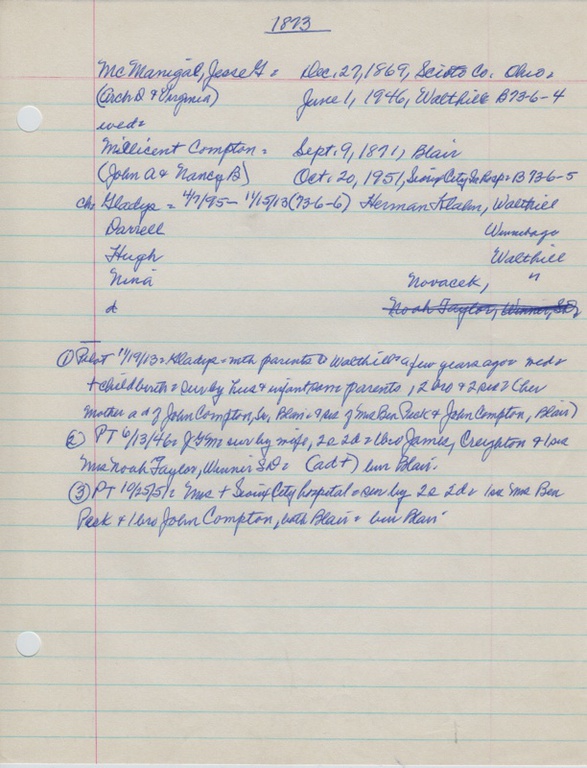 1873
McManigal, Jesse G = Dec. 27, 1869, Scioto Co. Ohio =
(Arch D & Virginia) June 1, 1946, Walthill B73-6-4
wed =
Millicent Compton = Sept. 9, 1871, Blair
(John A & Nancy B) Oct. 20, 1951, Sioux City, Ia Hosp = B73-6-5
ch: Gladys = 4/7/95 - 11/15/13 (73-6-6) Herman Klahn, Walthill
Darrell Winnebago
Hugh Walthill
Nina Novacek, "
d Noah Taylor, Winner, SD
① Pilot 11/19/13 = Gladys = with parents to Walthill = a few years ago =
+ childbirth = sur by hus & infant son = parents, 2 bro & 2 sis = (her
mother a d of John Compton, Sr, Blair = & sis of Mrs Ben Peck & John Compton, Blair)
② PT 6/13/46 = JGM = sur by wife, 2s 2d = 1 bro James, Creighton & 1 sis
Mrs Noah Taylor, Winner SD = (ad +) bur Blair.
③ PT 10/25/51 = Mrs + Sioux City hospital = sur by 2s 2d = 1 sis Mrs Ben
Peck & 1 bro John Compton, both Blair = bur Blair